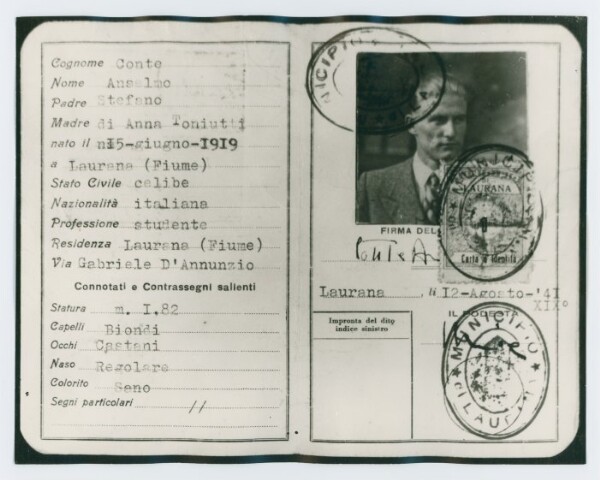 Cognome Conte
Nome Anselmo
Padre Stefano
Madre di Anna Toniutti
nato il n15-giugno-1919
a Laurana (Fiume)
Stato Civile celibe
Nazionalità italiana
Professione studente
Residenza Laurana (Fiume)
Via Gabriele D'Annunzio
Connotati e Contrassegni salienti
Statura m. I,82
Capelli Biondi
Occhi Castani
Naso Regolare
Colorito Sano
Segni particolari //
MUNICIPIO
LAURANA
Carta d'Identità
FIRMA DEL
Conte A
Laurana, li I2-Agosto-'41
XIX°
Impronta del dito
indice sinistro
IL PODESTÀ
MUNICIPIO
DI LAURANA